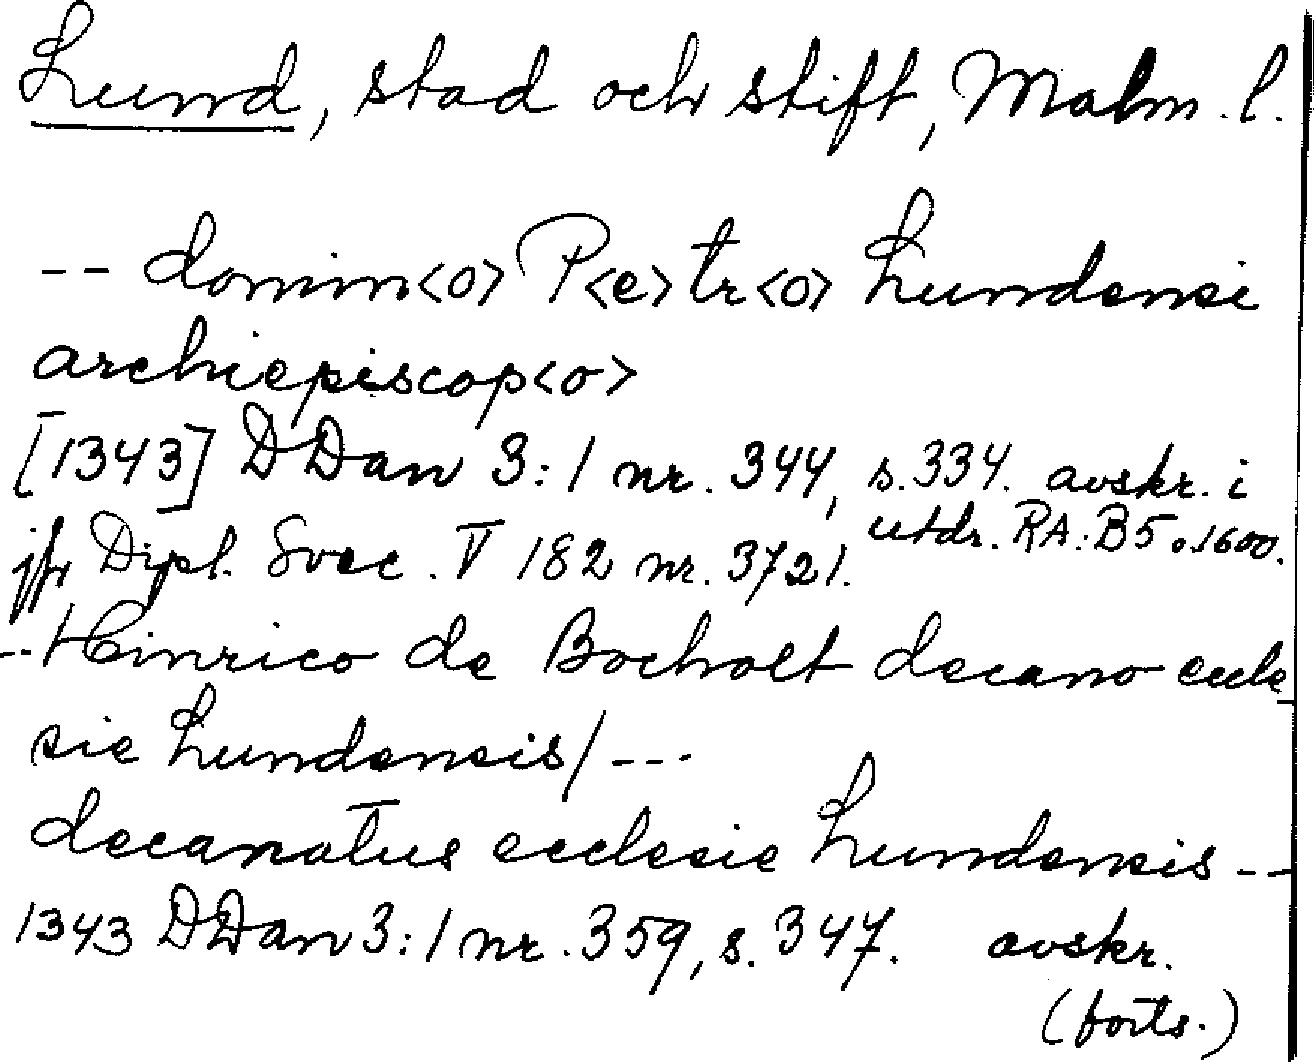 Lund, stad och stift, Malm. l.
-- domin<o> P<e>tr<o> Lundensi
archiepiscop<o>
[1343] DDan 3:1 nr. 344, s. 334. avskr. i
utdr. RA: B5 o. 1600.
jfr Dipl. Svec. V 182 nr. 3721.
-- Hinrico de Bocholt decano eccle
sie Lundensis/ ---
decanatus ecclesie Lundensis --
1343 DDan 3:1 nr. 359, s. 347. avskr.
(forts.)